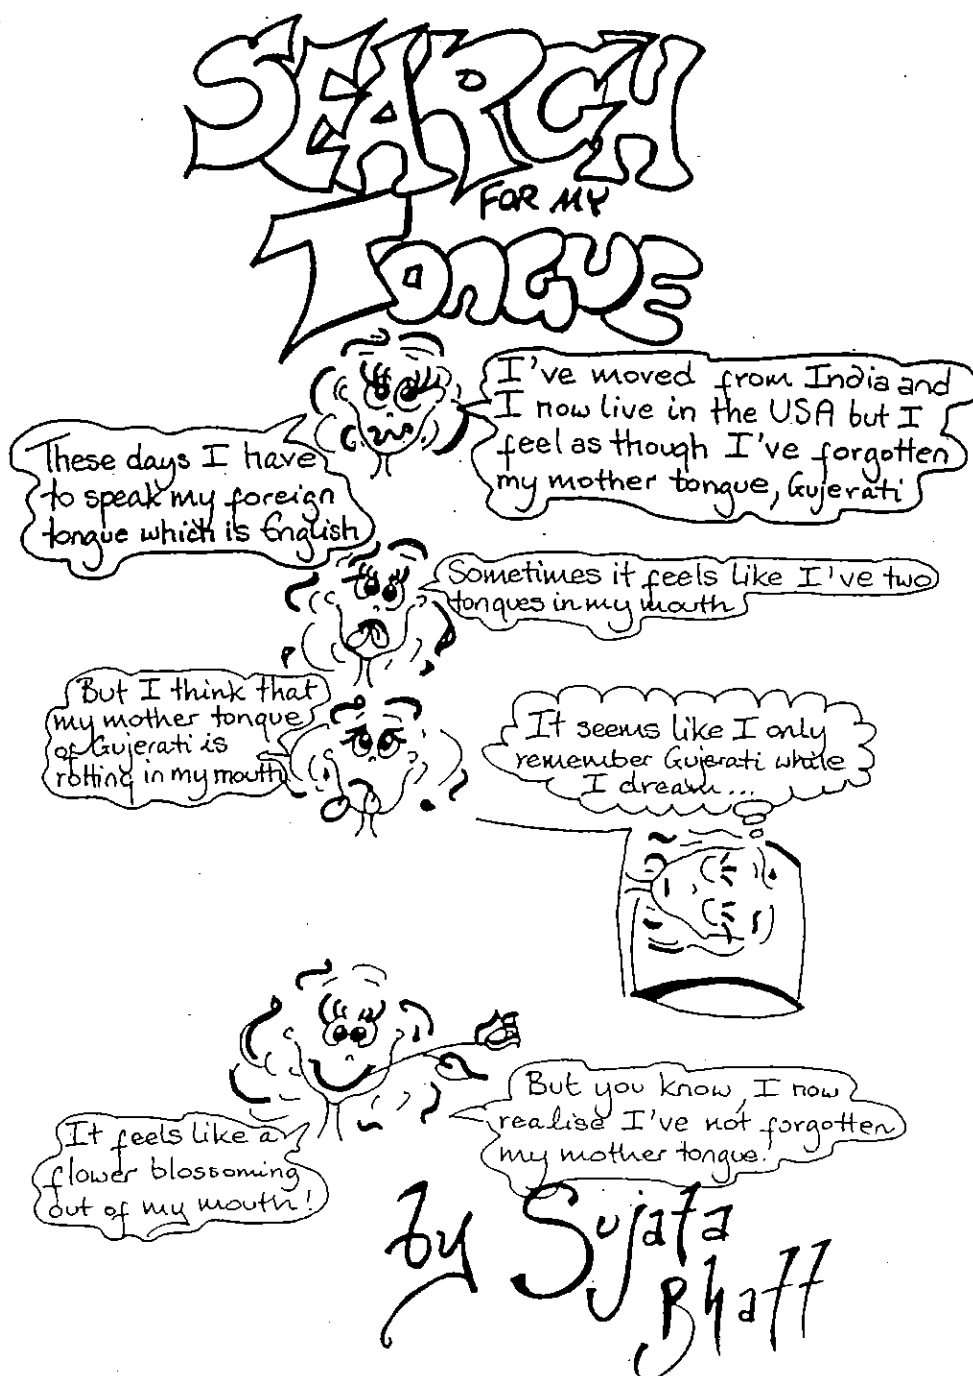 SEARCH
FOR MY
TONGUE
I've moved from India and
I now live in the USA but I
feel as though I've forgotten
my mother tongue, Gujerati
These days I have
to speak my foreign
tongue which is English
Sometimes it feels like I've two
tongues in my mouth
But I think that
my mother tongue
of Gujerati is
rotting in my mouth
It seems like I only
remember Gujerati while
I dream...
But you know, I now
realise I've not forgotten
my mother tongue.
It feels like a
flower blossoming
out of my mouth!
by Sujata
Bhatt